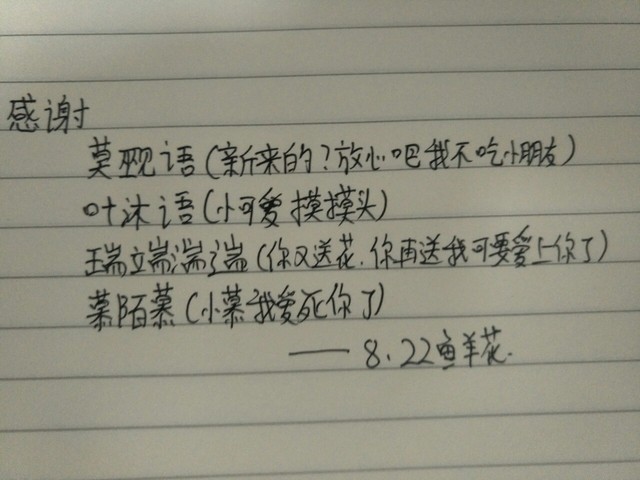 感谢
莫觋语(新来的?放心吧我不吃小朋友)
叶沐语(小可爱摸摸头)
瑞端湍端(你又送花.你再送我可要爱上你了)
慕陌慕(小慕我爱死你了)
——8.22鱼羊花.